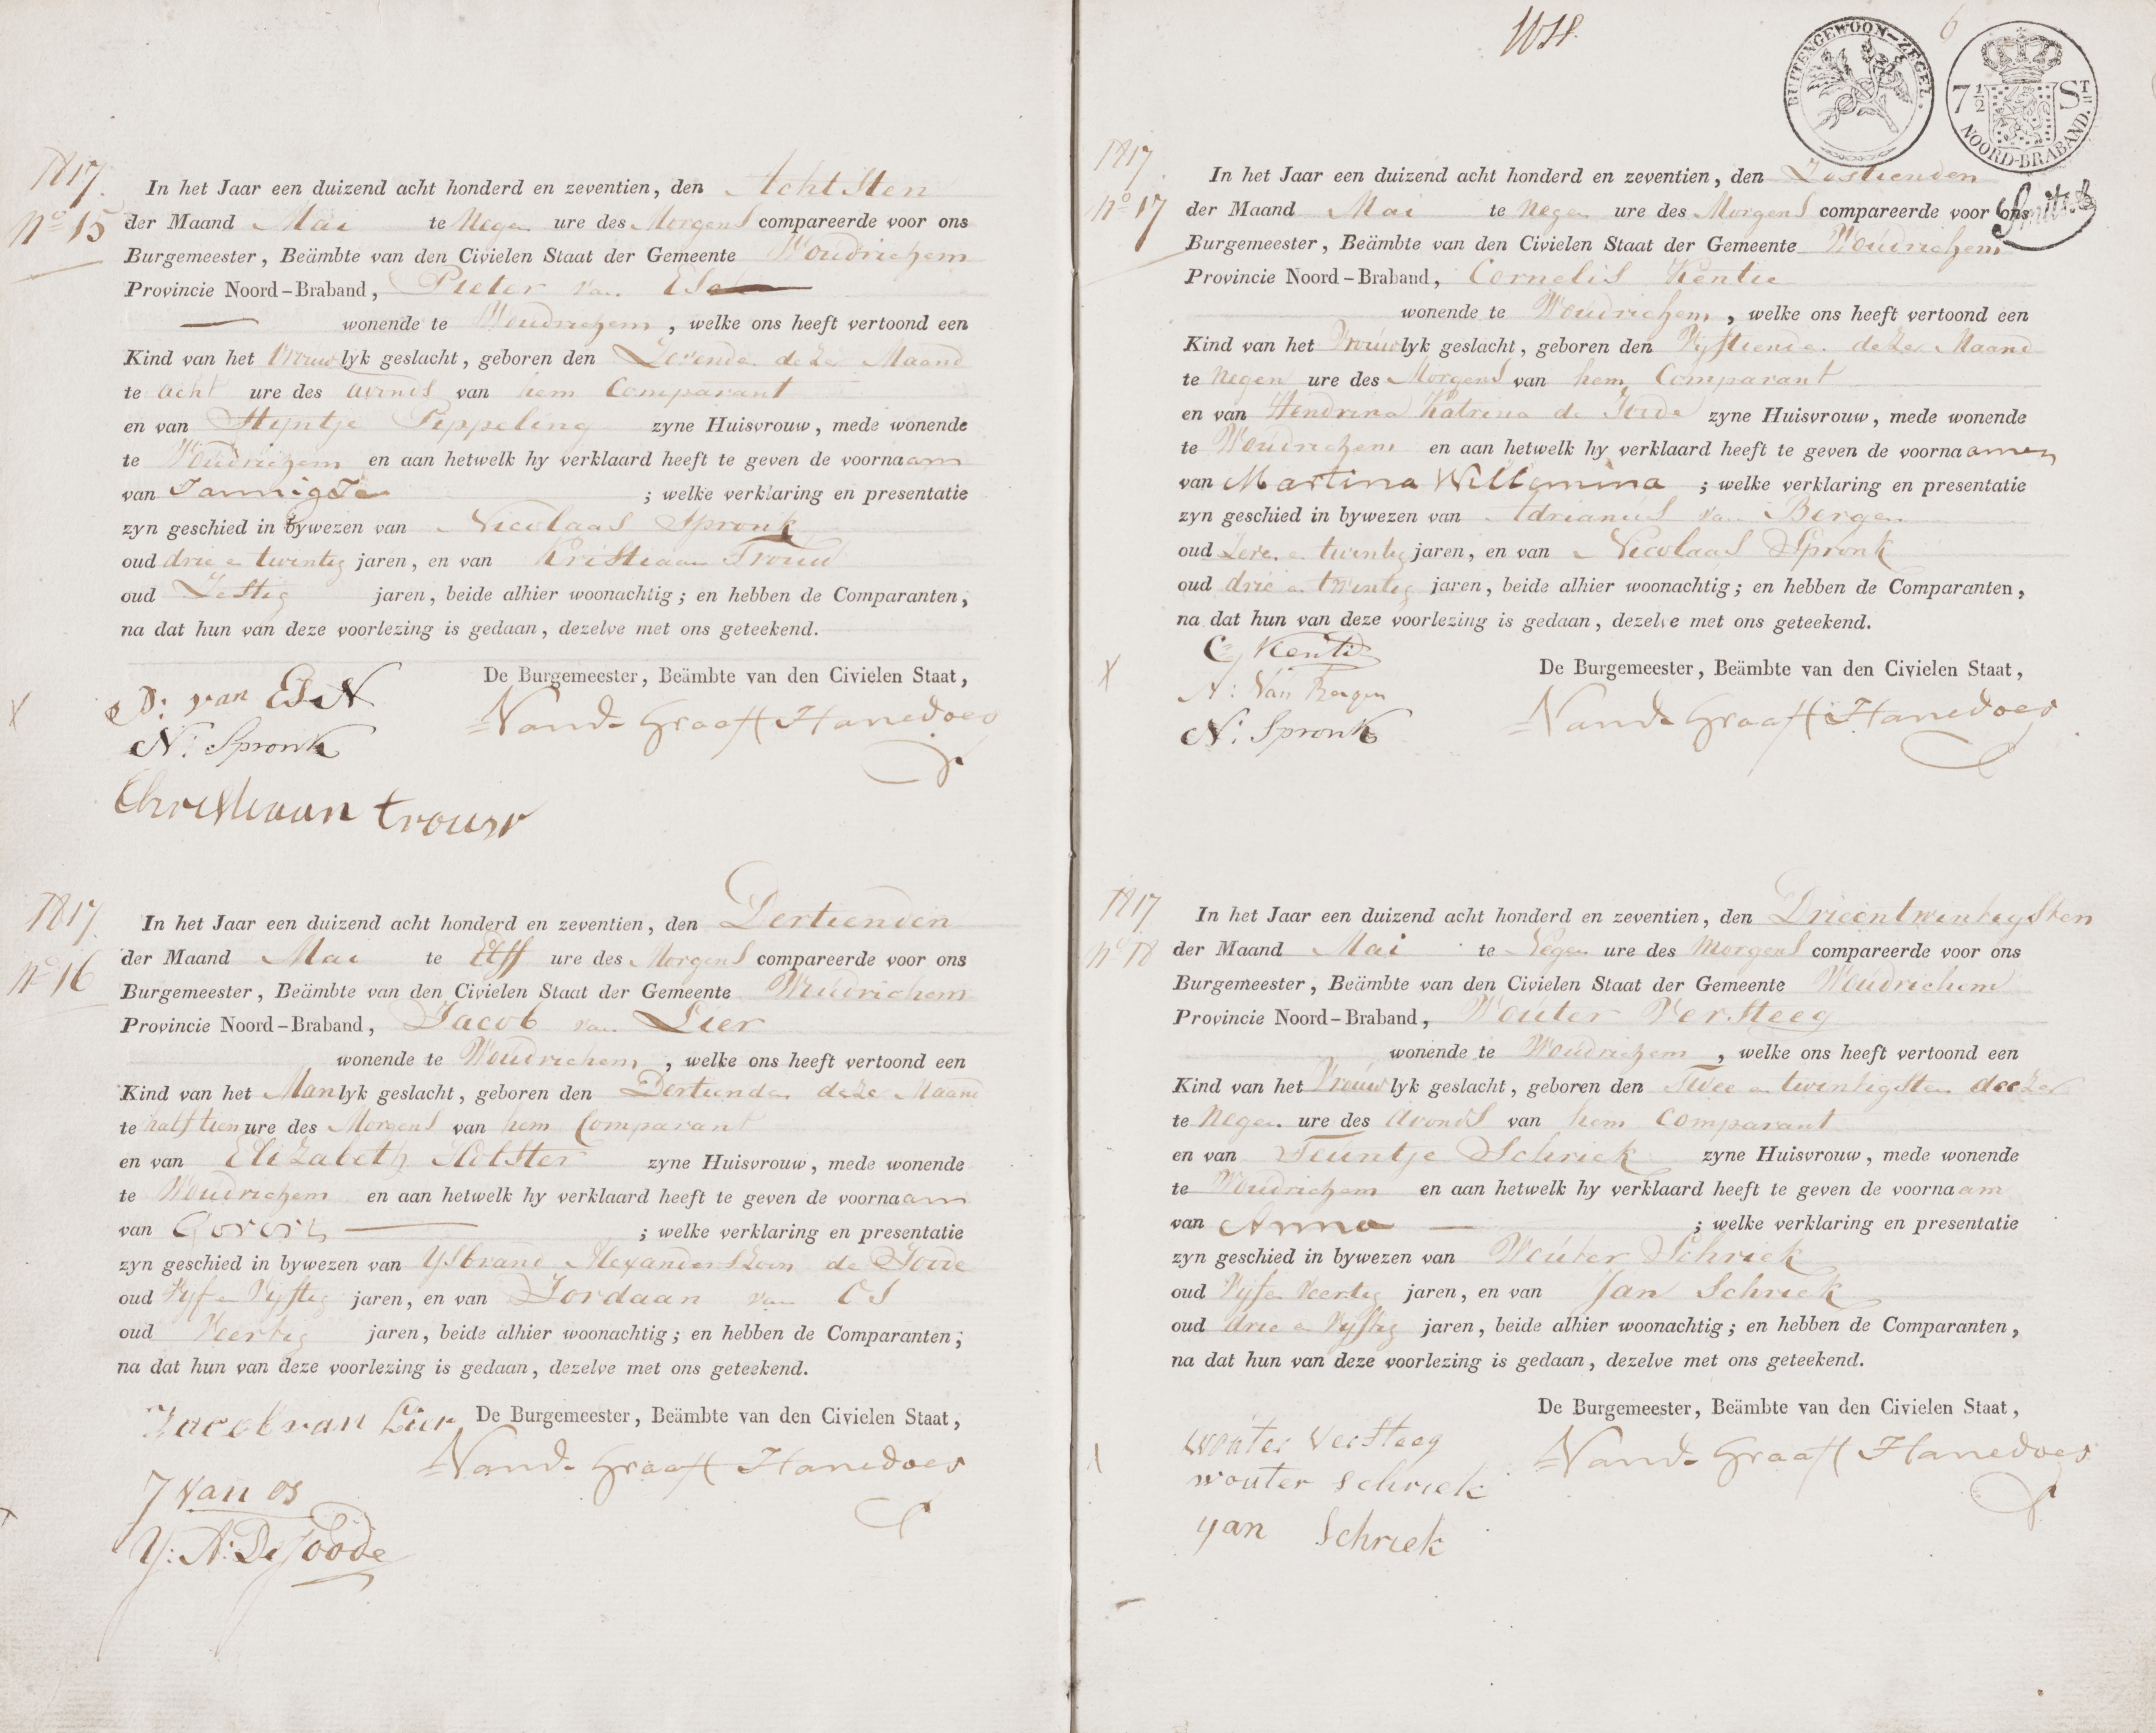 1817.
N.o 15
In het Jaar een duizend acht honderd en zeventien, den Achtsten
der Maand Mai te Negen ure des Morgens compareerde voor ons
Burgemeester, Beämbte van den Civielen Staat der Gemeente Woudrichem
Provincie Noord-Braband, Pieter van Esch
wonende te Woudrichem, welke ons heeft vertoond een
Kind van het Vrouwlyk geslacht, geboren den Zevenden dezer Maand
te acht ure des avonds van hem Comparant
en van Styntje Peppeling zyne Huisvrouw, mede wonende
te Woudrichem en aan hetwelk hy verklaard heeft te geven de voornaam
van Jannigje ; welke verklaring en presentatie
zyn geschied in bywezen van Nicolaas Spronk
oud drie en twintig jaren, en van Kristiaan Trouw
oud Zestig jaren, beide alhier woonachtig; en hebben de Comparanten,
na dat hun van deze voorlezing is gedaan, dezelve met ons geteekend.
De Burgemeester, Beämbte van den Civielen Staat,
P: van EsN
N: Spronk
Christiaan trouw
N vand Graaff Hanedoes
1817.
No 16
In het Jaar een duizend acht honderd en zeventien, den Dertienden
der Maand Mai te Elff ure des Morgens compareerde voor ons
Burgemeester, Beämbte van den Civielen Staat der Gemeente Woudrichem
Provincie Noord-Braband, Jacob van Lier
wonende te Woudrichem, welke ons heeft vertoond een
Kind van het Manlyk geslacht, geboren den Dertienden dezer Maand
te half tien ure des Morgens van hem Comparant
en van Elizabeth Holster zyne Huisvrouw, mede wonende
te Woudrichem en aan hetwelk hy verklaard heeft te geven de voornaam
van ; welke verklaring en presentatie
zyn geschied in bywezen van Ysbrand Alexanderszoon de Joode
oud Vyf en Vyftig jaren, en van Jordaan van Os
oud Veertig jaren, beide alhier woonachtig; en hebben de Comparanten,
na dat hun van deze voorlezing is gedaan, dezelve met ons geteekend.
De Burgemeester, Beämbte van den Civielen Staat,
Jacob van Lier
N vand Graaff Hanedoes
J van os
Y: A: De Joode
6
BUITENGEWOON-ZEGEL.
7 1/2 ST
NOORD-BRABAND.
1817.
No 17
In het Jaar een duizend acht honderd en zeventien, den Zestienden
der Maand Mai te Negen ure des Morgens compareerde voor ons
Burgemeester, Beämbte van den Civielen Staat der Gemeente Woudrichem
Provincie Noord-Braband, Cornelis Kentie
wonende te Woudrichem, welke ons heeft vertoond een
Kind van het Vrouwlyk geslacht, geboren den Vyftienden dezer Maand
te Negen ure des Morgens van hem Comparant
en van Hendrina Katrina de Joode zyne Huisvrouw, mede wonende
te Woudrichem en aan hetwelk hy verklaard heeft te geven de voornaamen
van Martina Willemina ; welke verklaring en presentatie
zyn geschied in bywezen van Adrianus van Bergen
oud Zeven en twintig jaren, en van Nicolaas Spronk
oud drie en twintig jaren, beide alhier woonachtig; en hebben de Comparanten,
na dat hun van deze voorlezing is gedaan, dezelve met ons geteekend.
De Burgemeester, Beämbte van den Civielen Staat,
C Kentie
A: Van Bergen
N: Spronk
N vand Graaff Hanedoes
1817
No 18
In het Jaar een duizend acht honderd en zeventien, den Drieentwintigsten
der Maand Mai te Negen ure des Morgens compareerde voor ons
Burgemeester, Beämbte van den Civielen Staat der Gemeente Woudrichem
Provincie Noord-Braband, Wouter Versteeg
wonende te Woudrichem, welke ons heeft vertoond een
Kind van het Vrouwlyk geslacht, geboren den Twee en twintigsten deezer
te Negen ure des Avonds van hem Comparant
en van Teuntje Schriek zyne Huisvrouw, mede wonende
te Woudrichem en aan hetwelk hy verklaard heeft te geven de voornaam
van Anna ; welke verklaring en presentatie
zyn geschied in bywezen van Wouter Schriek
oud Vyf en Veertig jaren, en van Jan Schriek
oud drie en Vyftig jaren, beide alhier woonachtig; en hebben de Comparanten,
na dat hun van deze voorlezing is gedaan, dezelve met ons geteekend.
De Burgemeester, Beämbte van den Civielen Staat,
wouter versteeg
wouter schriek
yan Schriek
N vand Graaff Hanedoes